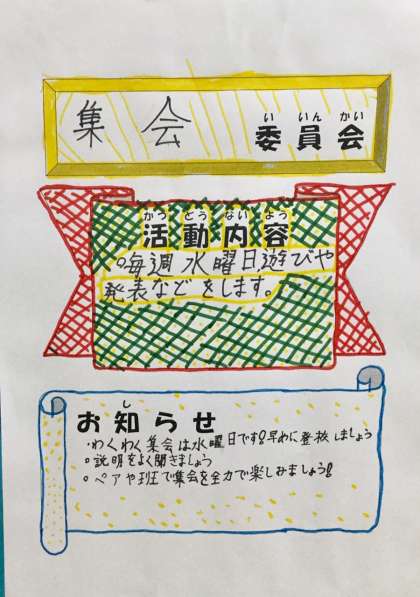 集会
いいんかい
委員会
かつどうないよう
活動内容
。毎週水曜日遊びや
発表などをします。
し
お知らせ
・わくわく集会は水曜日です!早めに登校しましょう
。説明をよく聞きましょう
。ペアや班で集会を全力で楽しみましょう!